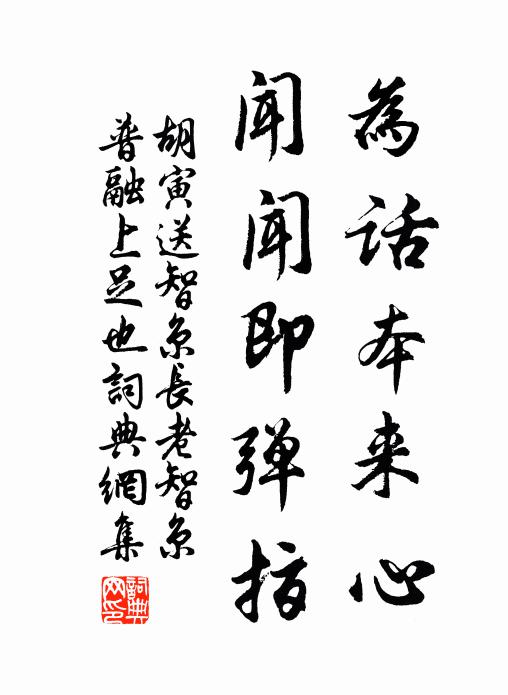 為话本来心
闻闻即弹指
胡寅送智京長老智京
普融上足也詞典網集
詞典
网印